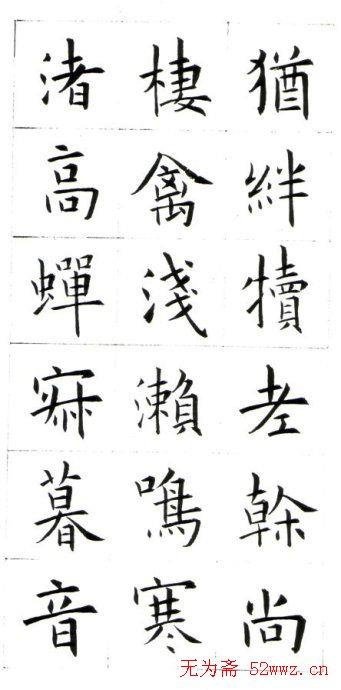 猶絆犢老榦尚
棲禽淺瀨鳴寒
渚高蟬寂暮音
无为斋 52wwz.cn